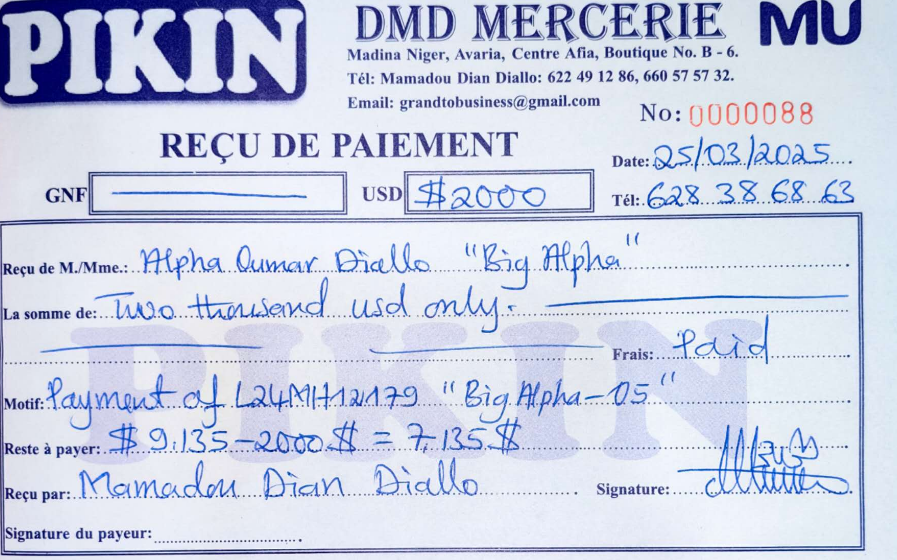 PIKIN
DMD MERCERIE
MU
Madina Niger, Avaria, Centre Afia, Boutique No. B - 6.
Tél: Mamadou Dian Diallo: 622 49 12 86, 660 57 57 32.
Email: grandtobusiness@gmail.com
No: 0000088
REÇU DE PAIEMENT
Date: 25/03/2025
GNF
USD $2000
Tél: 628 38 68 63
Reçu de M./Mme.: Alpha Oumar Diallo "Big Alpha"
La somme de: Two thousand usd only.
Frais: Paid
Motif: Payment of L24MH12179 "Big Alpha-05"
Reste à payer: $ 9.135-2000.$ = 7.135.$
Reçu par: Mamadou Dian Diallo Signature:
Signature du payeur:
PIKIN